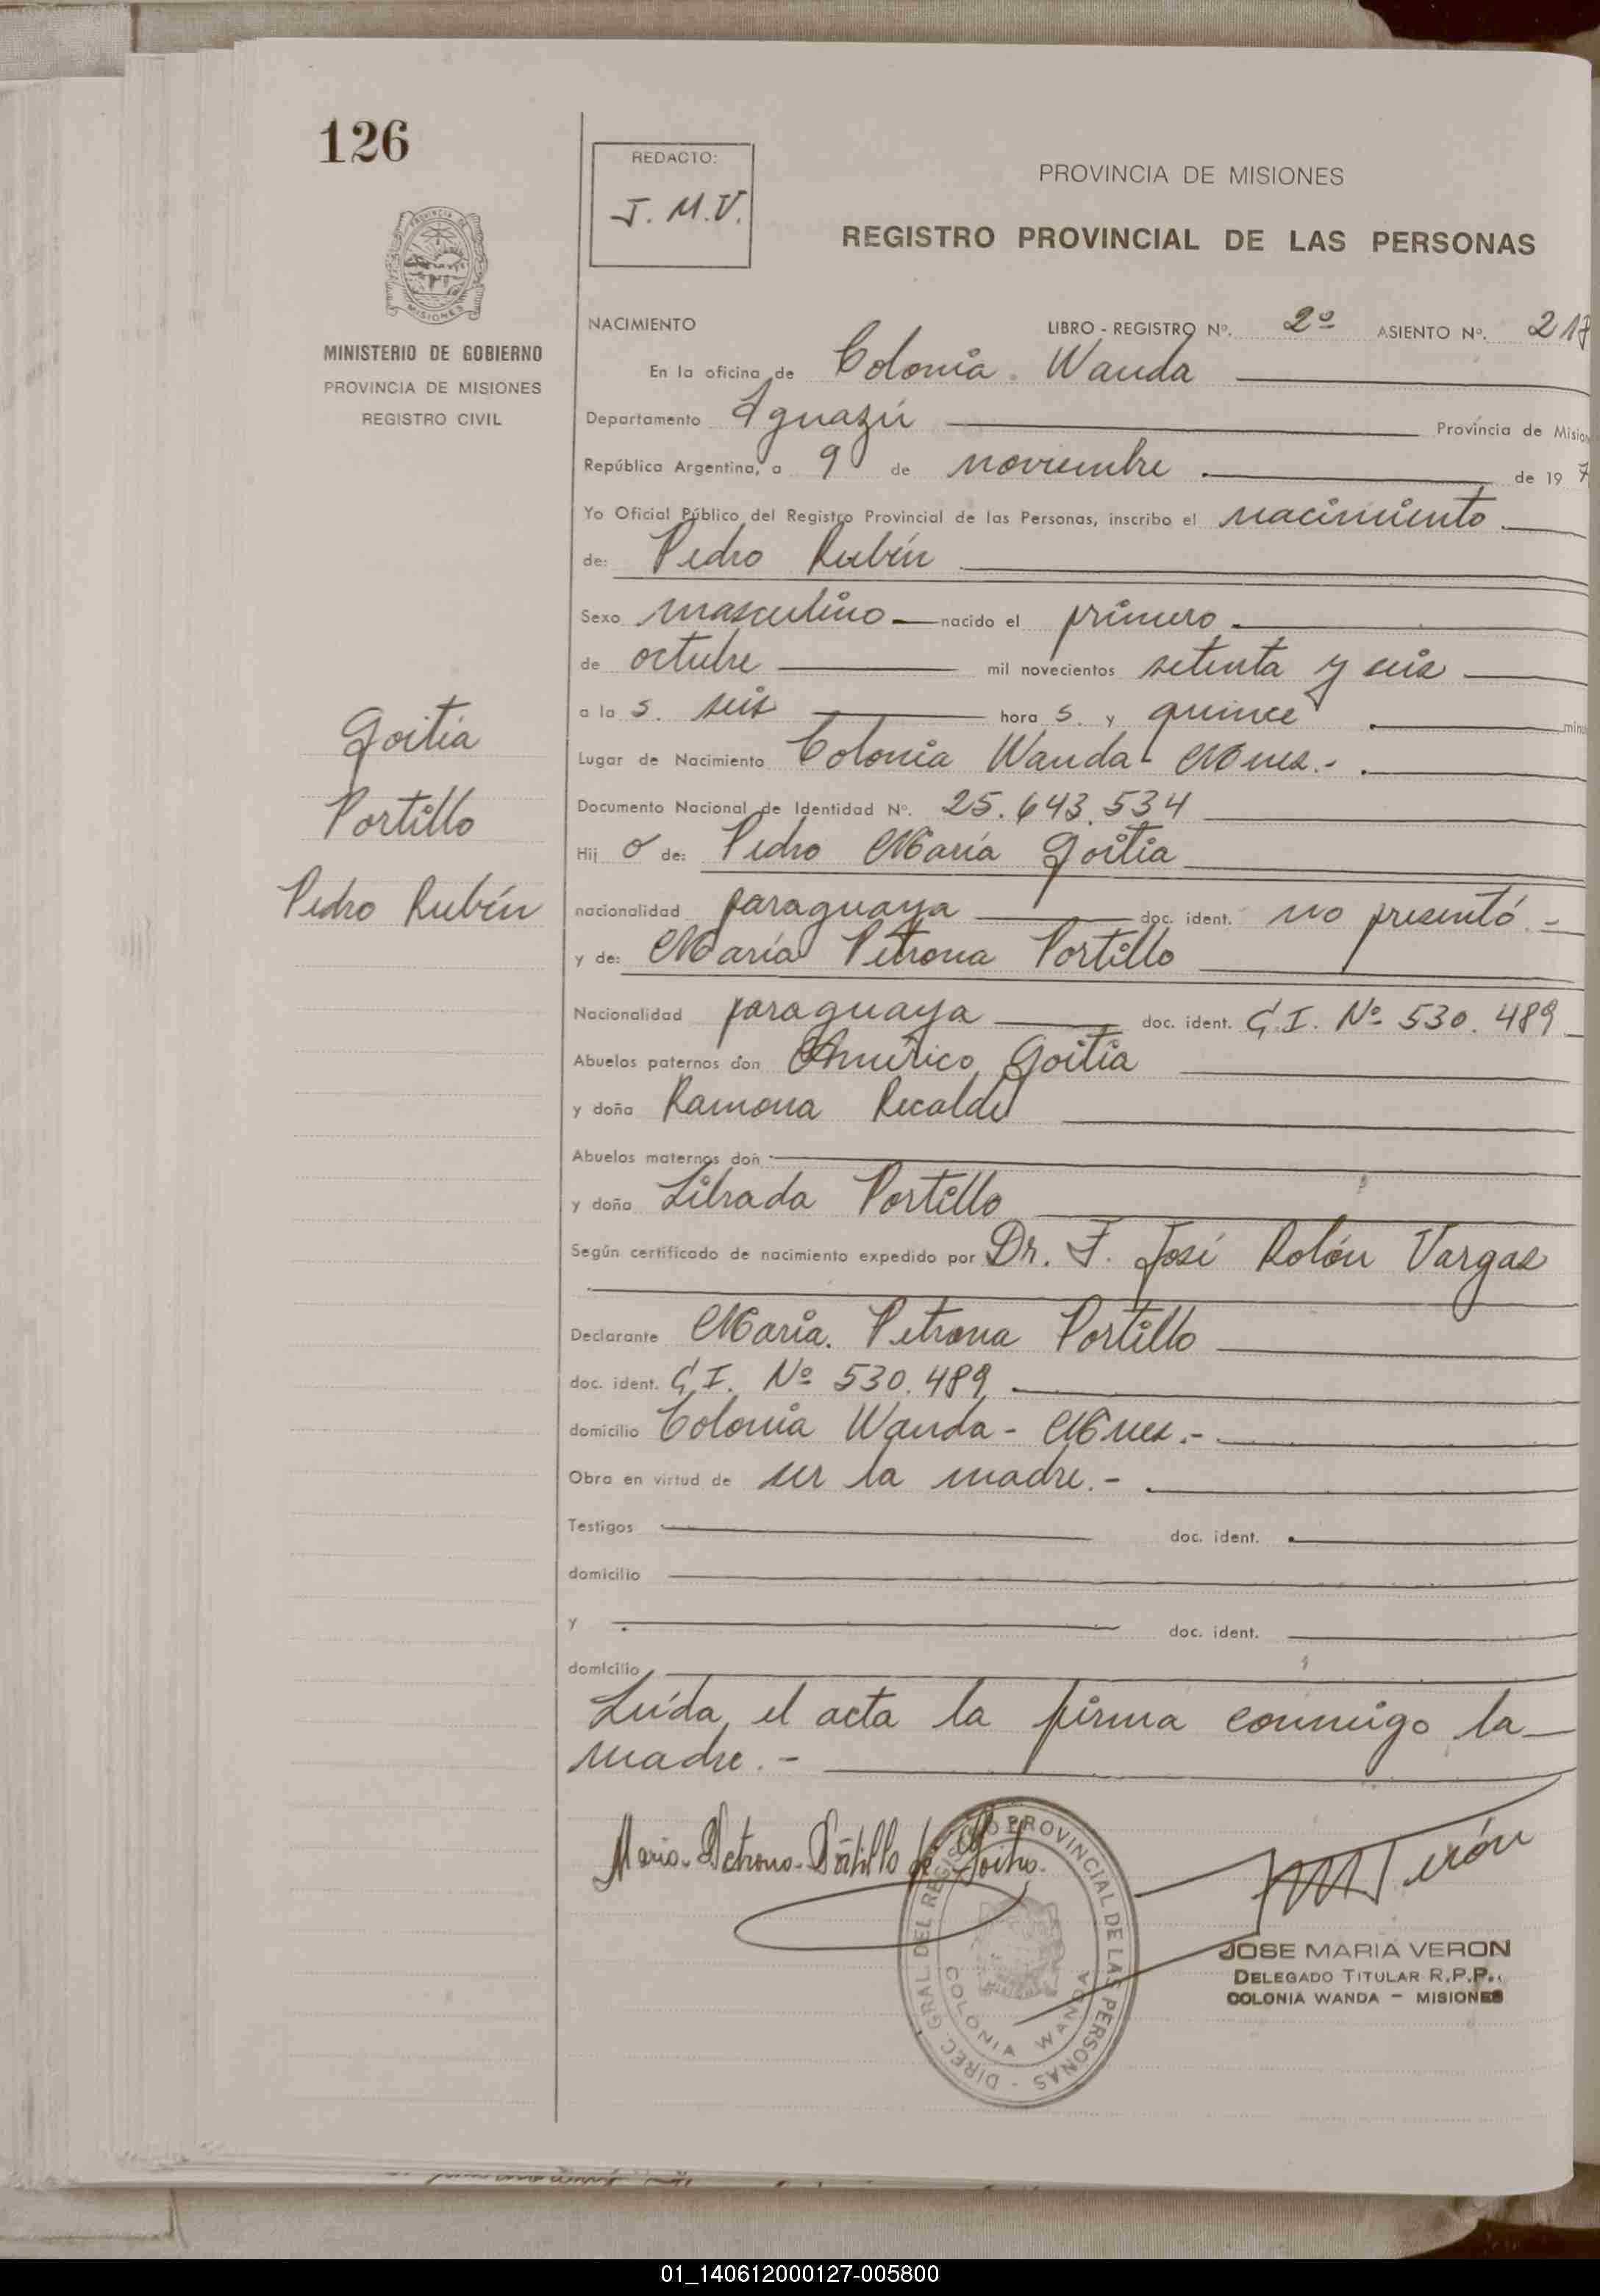 126
REDACTO:
J. M. V.
PROVINCIA DE MISIONES
REGISTRO PROVINCIAL DE LAS PERSONAS
MINISTERIO DE GOBIERNO
PROVINCIA DE MISIONES
REGISTRO CIVIL
NACIMIENTO LIBRO - REGISTRO Nº. 2º ASIENTO Nº.
En la oficina de Colonia Wanda
Departamento Iguazú Provincia de
República Argentina, a 9 de noviembre de 19 7
Yo Oficial Público del Registro Provincial de las Personas, inscribo el nacimiento
de: Pedro Rubín
Sexo masculino nacido el primero
de octubre mil novecientos setenta y seis
a la s. seis hora s. y quince
Lugar de Nacimiento Colonia Wanda - Mnes.-
Documento Nacional de Identidad Nº. 25.643.534
Hij o de: Pedro María Goitia
nacionalidad paraguaya doc. ident. no presentó.-
y de: María Petrona Portillo
Nacionalidad paraguaya doc. ident. C.I. Nº 530.489
Abuelos paternos don Américo Goitia
y doña Ramona Recalde
Abuelos maternos don
y doña Librada Portillo
Según certificado de nacimiento expedido por Dr. F. José Rolón Vargas
Declarante María Petrona Portillo
doc. ident. C.I. Nº 530.489
domicilio Colonia Wanda - Mnes.-
Obra en virtud de ser la madre.-
Testigos doc. ident.
domicilio
y doc. ident.
domicilio
Leída el acta la firma conmigo la
madre.-
Goitia
Portillo
Pedro Rubín
Maria Petrona Portillo de Goitia
DIREC. GRAL DEL REGISTRO PROVINCIAL DE LAS PERSONAS -
COLONIA WANDA
JOSE MARIA VERON
DELEGADO TITULAR R.P.P.
COLONIA WANDA - MISIONES
01_140612000127-005800